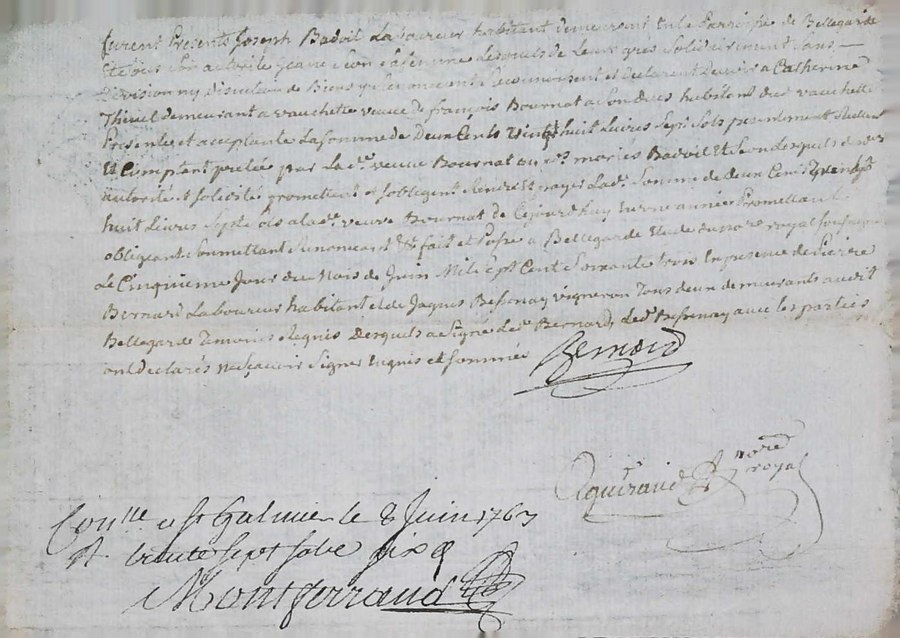 furent Presents Joseph Badoil Laboureur habitant demeurant en la Parroisse de Bellegarde
et sous son autorité Jeane sa femme desquels de leurs gres solidairement sans
division ny discution de Biens reconnoissent et declarent devoir a Catherine
Thiuel demeurant a vauchette veuve de françois Bournat a son dues habitent dud vauchette
Presente et acceptante La somme de Deux Cents vingt huit Livres Sept Sols presentement
et Comptant pretée par Lad.e veuve Bournat aux.d. mariés Badoil et
autorité et solidité promettent et sobligent rendre et payer Lad.e Somme de deux Cents vingt
huit Livres Sept sols a lad.e veuve Bournat de Cejourdhuy en une année Promettant
obligeant Soumettant Renonceant &c fait et Passé a Bellegarde Etude du no.re royal soussigné
Le Cinquieme Jour du Mois de Juin Mil Sept Cent Soixante trois En presence de Pierre
Bernard Laboureur habitant et de Jaques Bessenay vigneron Tous deux demeurants audit
Bellegarde Temoins Requis Desquels a Signé led. Bernard, led. Bessenay avec les parties
ont declarés ne sçavoir Signer Enquis et sommés
Bernard
no.re
royal
Con.lle a St Galmier le 8 Juin 1763
R. trente sept sols six d
Montferrand